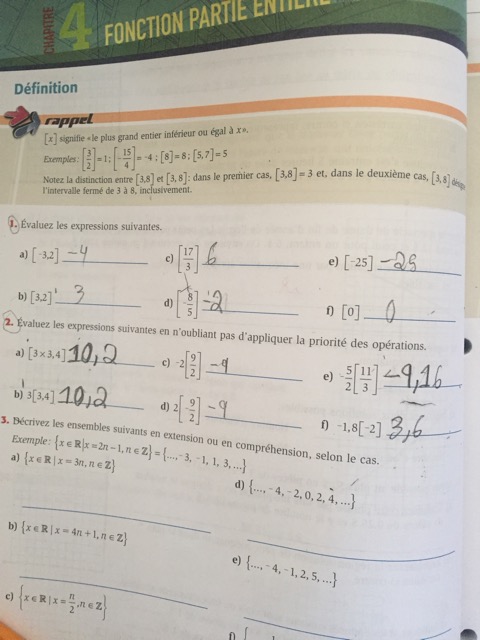 CHAPITRE 4 FONCTION PARTIE ENTIÈRE
Définition
rappel
[x] signifie «le plus grand entier inférieur ou égal à x».
Exemples: [3/2]=1; [-15/4]=-4; [8]=8; [5,7]=5
Notez la distinction entre [3,8] et [3, 8]: dans le premier cas, [3,8] = 3 et, dans le deuxième cas, [3, 8]
l'intervalle fermé de 3 à 8, inclusivement.
1. Évaluez les expressions suivantes.
a) [-3,2] -4 c) [17/3] 6 e) [-25] -25
b) [3,2] 3 d) [-8/5] -2 f) [0] 0
2. Évaluez les expressions suivantes en n'oubliant pas d'appliquer la priorité des opérations.
a) [3×3,4] 10,2 c) -2[9/2] -9 e) -5/2[11/3] -9,16
b) 3[3,4] 10,2 d) 2[-9/2] -9 f) -1,8[-2] 3,6
3. Décrivez les ensembles suivants en extension ou en compréhension, selon le cas.
Exemple: {x ∈ ℝ|x=2n-1, n ∈ ℤ} = {..., -3, -1, 1, 3, ...}
a) {x ∈ ℝ | x = 3n, n ∈ ℤ} d) {..., -4, -2, 0, 2, 4, ...}
b) {x ∈ ℝ | x = 4n + 1, n ∈ ℤ} e) {..., -4, -1, 2, 5, ...}
c) {x ∈ ℝ | x = n/2, n ∈ ℤ} f) {